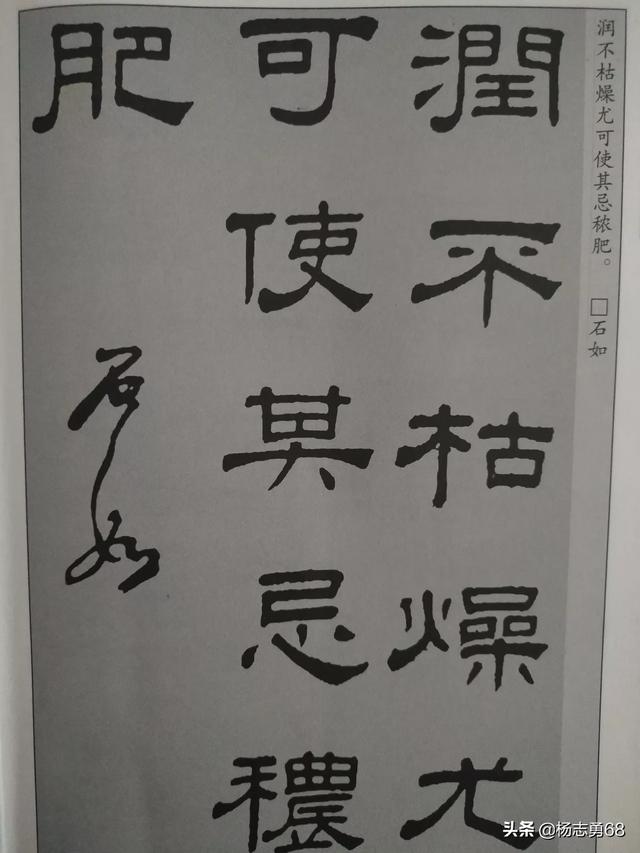 润不枯燥尤可使其忌秾肥。 □石如
潤不枯燥尤
可使其忌穠
肥
石如
头条 @杨志勇68